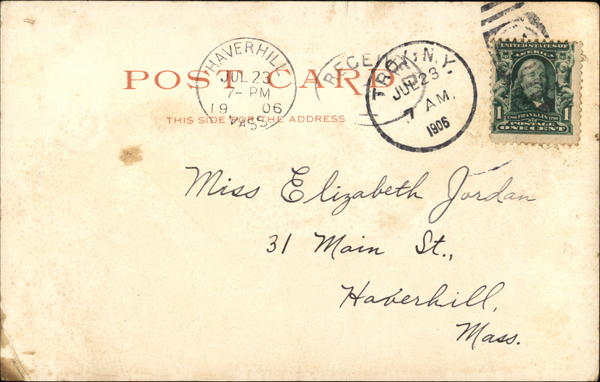 HAVERHILL
JUL 23
7-PM
19 06
MASS.
RECEIVED
TROY, N.Y.
JUL 23
7 AM.
1906
POST CARD
THIS SIDE FOR THE ADDRESS
UNITED STATES OF
AMERICA
1 1
POSTAGE
ONE CENT
Miss Elizabeth Jordan
31 Main St.,
Haverhill,
Mass.